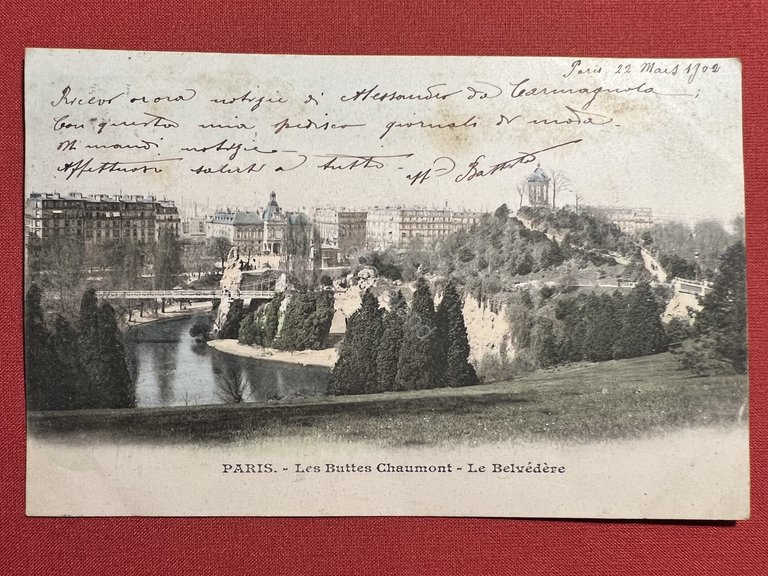 Paris 22 Mars 1902
Ricevo orora notizie di Alessandro da Carmagnola;
Con questa mia spedisco giornali di moda.
Mi mandi notizie.
Affettuosi saluti a tutti
Battista
PARIS. - Les Buttes Chaumont - Le Belvédère